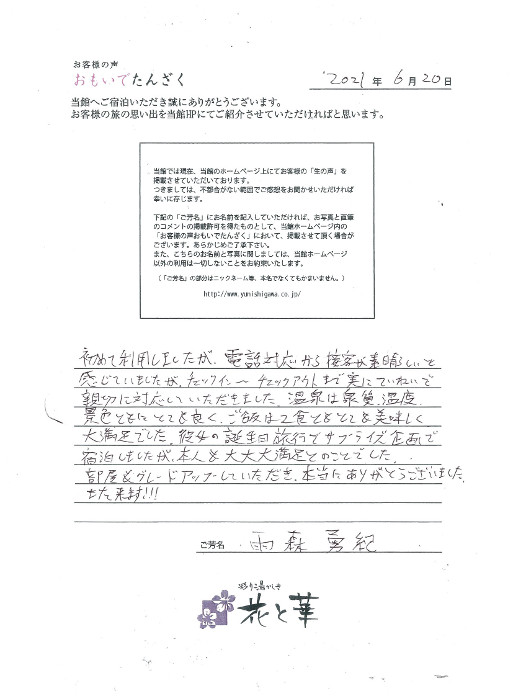 お客様の声
おもいでたんざく
2021年 6月20日
当館へご宿泊いただき誠にありがとうございます。
お客様の旅の思い出を当館HPにてご紹介させていただければと思います。
当館では現在、当館のホームページ上にてお客様の「生の声」を
掲載させていただいております。
つきましては、不都合がない範囲でご感想をお聞かせいただければ
幸いに存じます。
下記の「ご芳名」にお名前を記入していただければ、お写真と直筆
のコメントの掲載許可を得たものとして、当館ホームページ内の
「お客様の声おもいでたんざく」において、掲載させて頂く場合が
ございます。あらかじめご了承下さい。
また、こちらのお名前と写真に関しましては、当館ホームページ
以外の利用は一切しないことをお約束いたします。
(「ご芳名」の部分はニックネーム等、本名でなくてもかまいません。)
http://www.yumishigawa.co.jp/
初めて利用しましたが、電話対応から接客が素晴しいと
感じていましたが、チェックイン〜チェックアウトまで実にていねいで
親切に対応していただきました。温泉は泉質、温度、
景色ともにとても良く、ご飯は2食ともとても美味しく
大満足でした。彼女の誕生日旅行でサプライズ企画で
宿泊しましたが、本人も大大大満足とのことでした。
部屋もグレードアップしていただき、本当にありがとうございました。
また来ます!!!
ご芳名 雨森 勇紀
彩り湯かしき
花と華